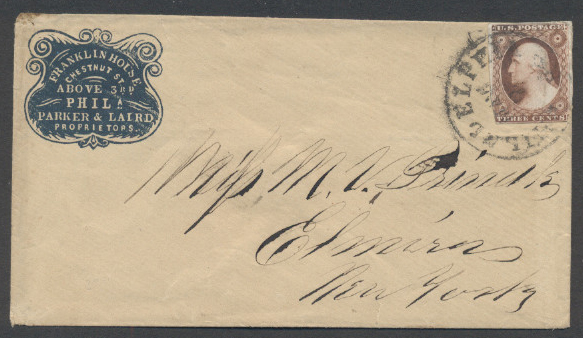 FRANKLIN HOUSE
CHESTNUT ST.
ABOVE 3RD
PHILA
PARKER & LAIRD
PROPRIETORS.
U.S. POSTAGE
THREE CENTS
Miss M. V.
Elmira
New York